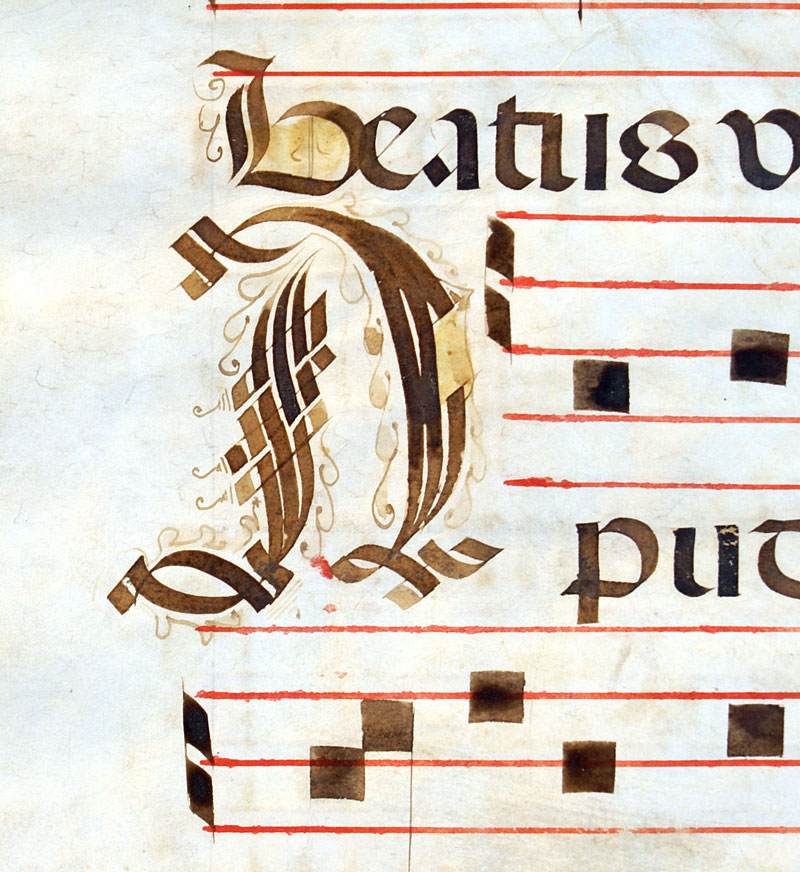 Beatus v
Apud